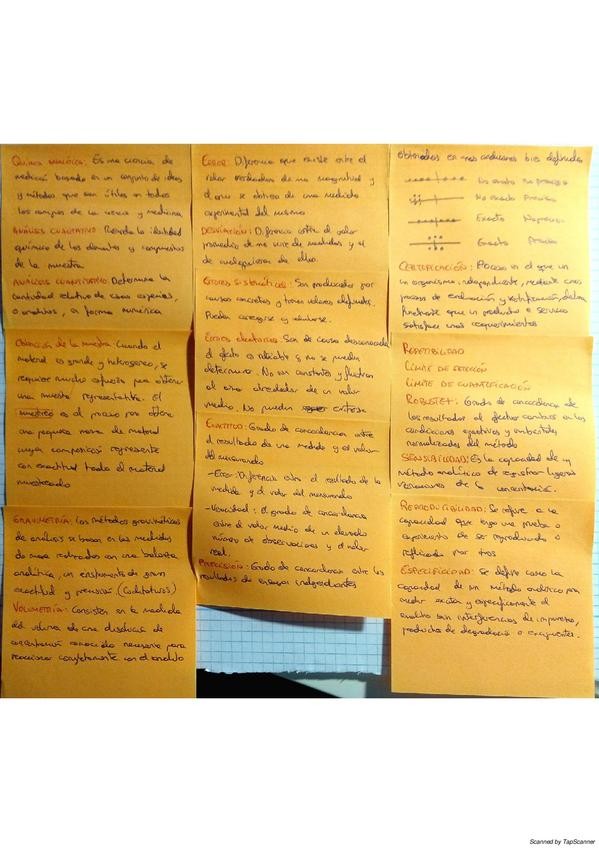 QUÍMICA ANALÍTICA: Es una ciencia de
medición basada en un conjunto de ideas
y métodos que son útiles en todos
los campos de la ciencia y medicina
ANÁLISIS CUALITATIVO: Revela la identidad
química de los elementos y compuestos
de la muestra
ANÁLISIS CUANTITATIVO: Determina la
cantidad relativa de esas especies,
o analitos, en forma numérica
Obtención de la muestra: Cuando el
material es grande y heterogéneo, se
requiere mucho esfuerzo para obtener
una muestra representativa. El
muestreo es el proceso para obtener
una pequeña masa de material
cuya composición represente
con exactitud todo el material
muestreado
GRAVIMETRÍA: Los métodos gravimétricos
de análisis se basan en las medidas
de masa realizadas con una balanza
analítica, un instrumento de gran
exactitud y precisión (Cualitativos)
VOLUMETRÍA: Consisten en la medida
del volumen de una disolución de
concentración conocida necesaria para
reaccionar completamente con el analito
ERROR: Diferencia que existe entre el
valor verdadero de una magnitud y
el que se obtiene de una medida
experimental del mismo
DESVIACIÓN: Diferencia entre el valor
promedio de una serie de medidas y el
de cualquiera de ellas.
ERRORES SISTEMÁTICOS: Son producidos por
causas concretas y tienen valores definidos.
Pueden corregirse y
Errores aleatorios: Son de causa desconocida
el efecto es variable y no se pueden
determinar. No son constantes y fluctúan
al azar alrededor de un valor
medio. No pueden evitarse
EXACTITUD: Grado de concordancia entre
el resultado de una medida y el valor
del mensurando
-Error: Diferencia entre el resultado de la
medida y el valor del mensurando
-Veracidad: El grado de concordancia
entre el valor medio de un elevado
número de observaciones y el valor
real.
PRECISIÓN: Grado de concordancia entre los
resultados de ensayos independientes
obtenidos en unas condiciones bien definidas
No exacto No preciso
No exacto Preciso
Exacto No preciso
Exacto Preciso
CERTIFICACIÓN: Proceso en el que un
un organismo independiente, mediante unos
procesos de evaluación y verificación, declara
finalmente que un producto o servicio
satisface unos requerimientos
REPETIBILIDAD
LÍMITE DE DETECCIÓN
LÍMITE DE CUANTIFICACIÓN
ROBUSTEZ: Grado de concordancia de
los resultados al efectuar cambios en las
condiciones operativas y ambientales
normalizadas del método
SENSIBILIDAD: Es la capacidad de un
método analítico de registrar ligeras
variaciones de la concentración.
REPRODUCIBILIDAD: Se refiere a la
capacidad que tenga una prueba o
experimento de ser reproducido o
replicado por otros
ESPECIFICIDAD: Se define como la
capacidad de un método analítico para
medir exacta y específicamente el
analito sin interferencias de impurezas,
productos de degradación o excipientes.
Scanned by TapScanner